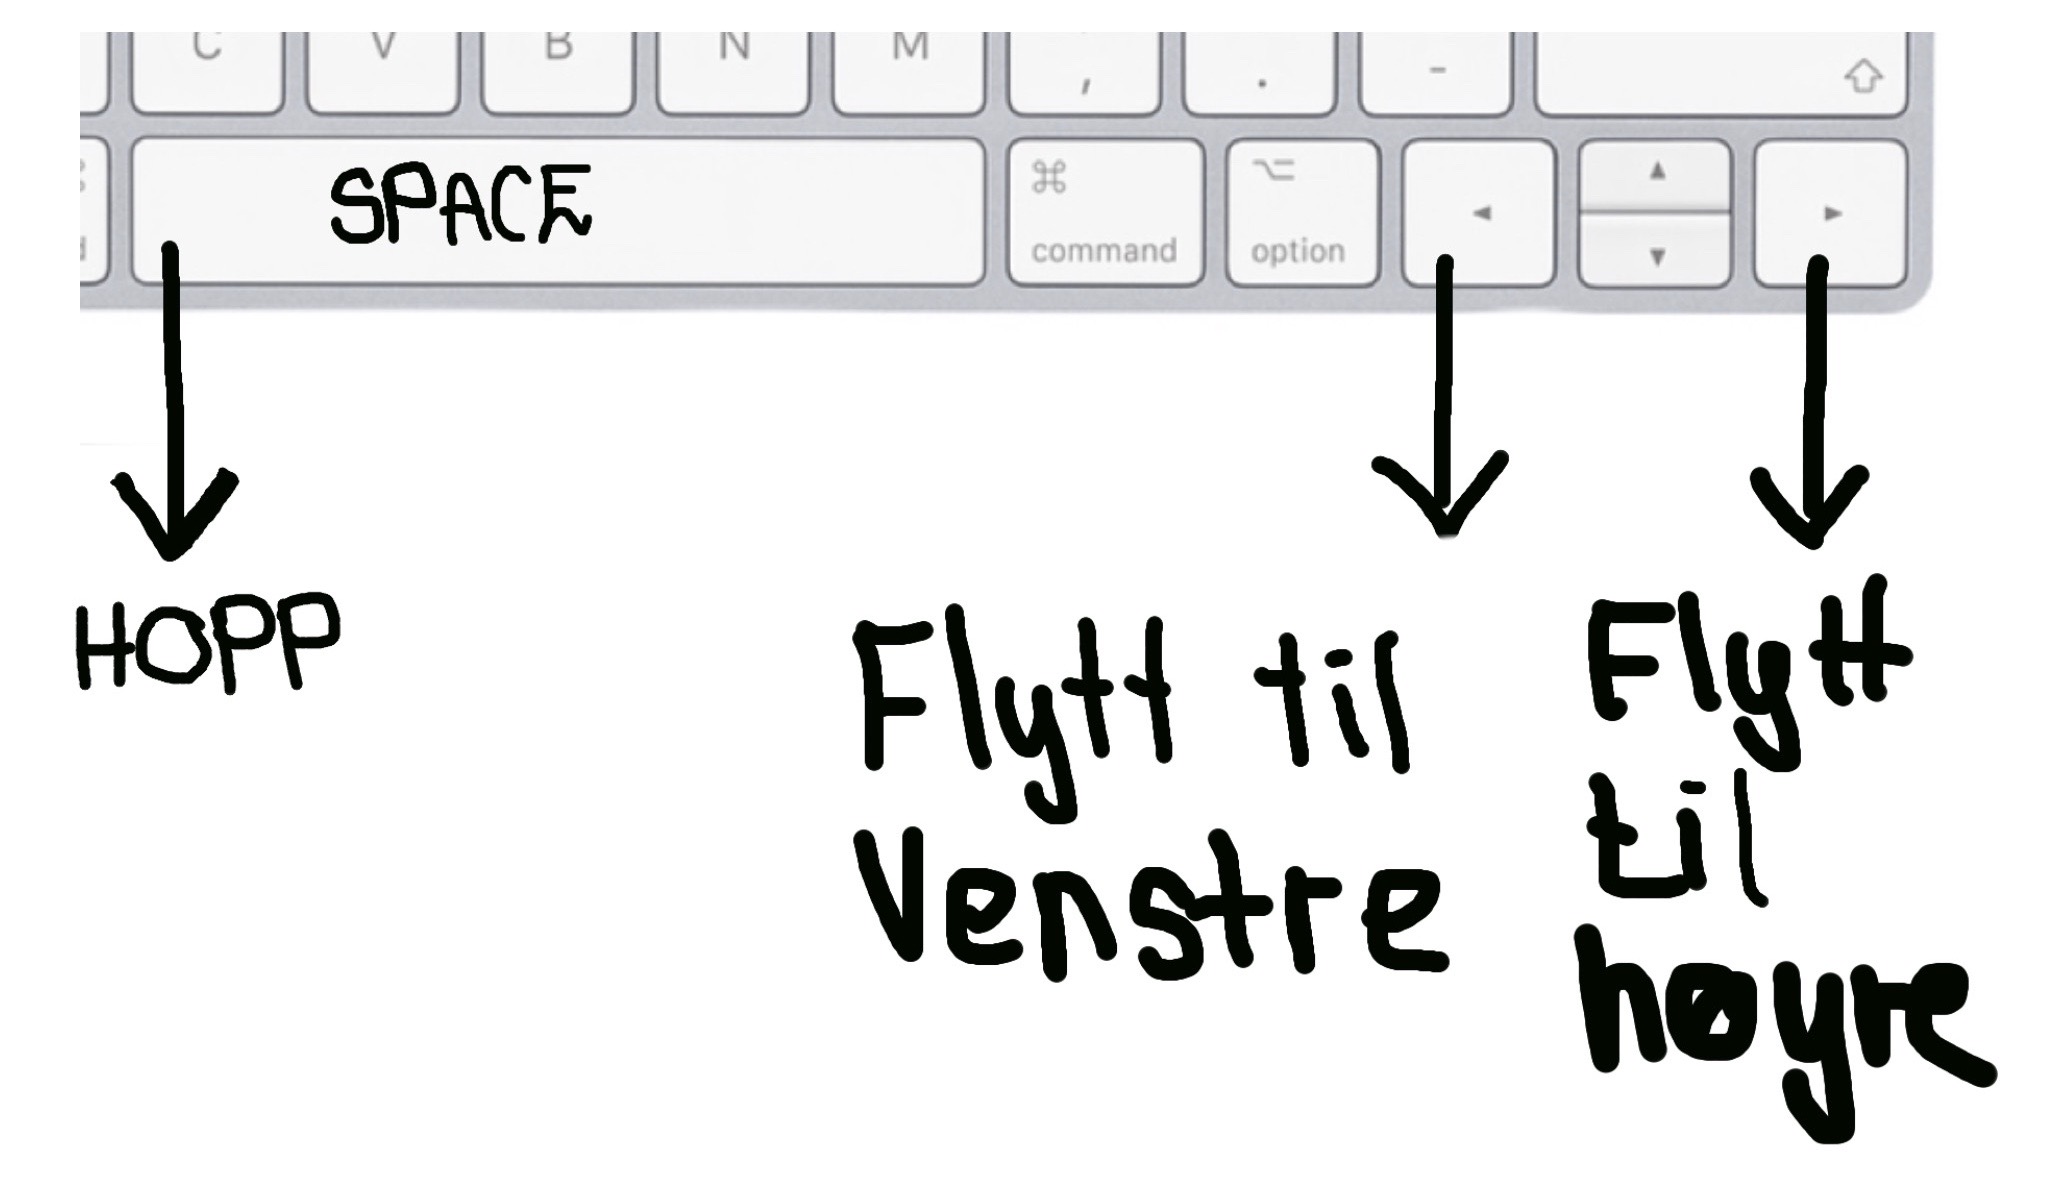 C V B N M , . -
SPACE
command option
HOPP
Flytt til
Venstre
Flytt
til
høyre